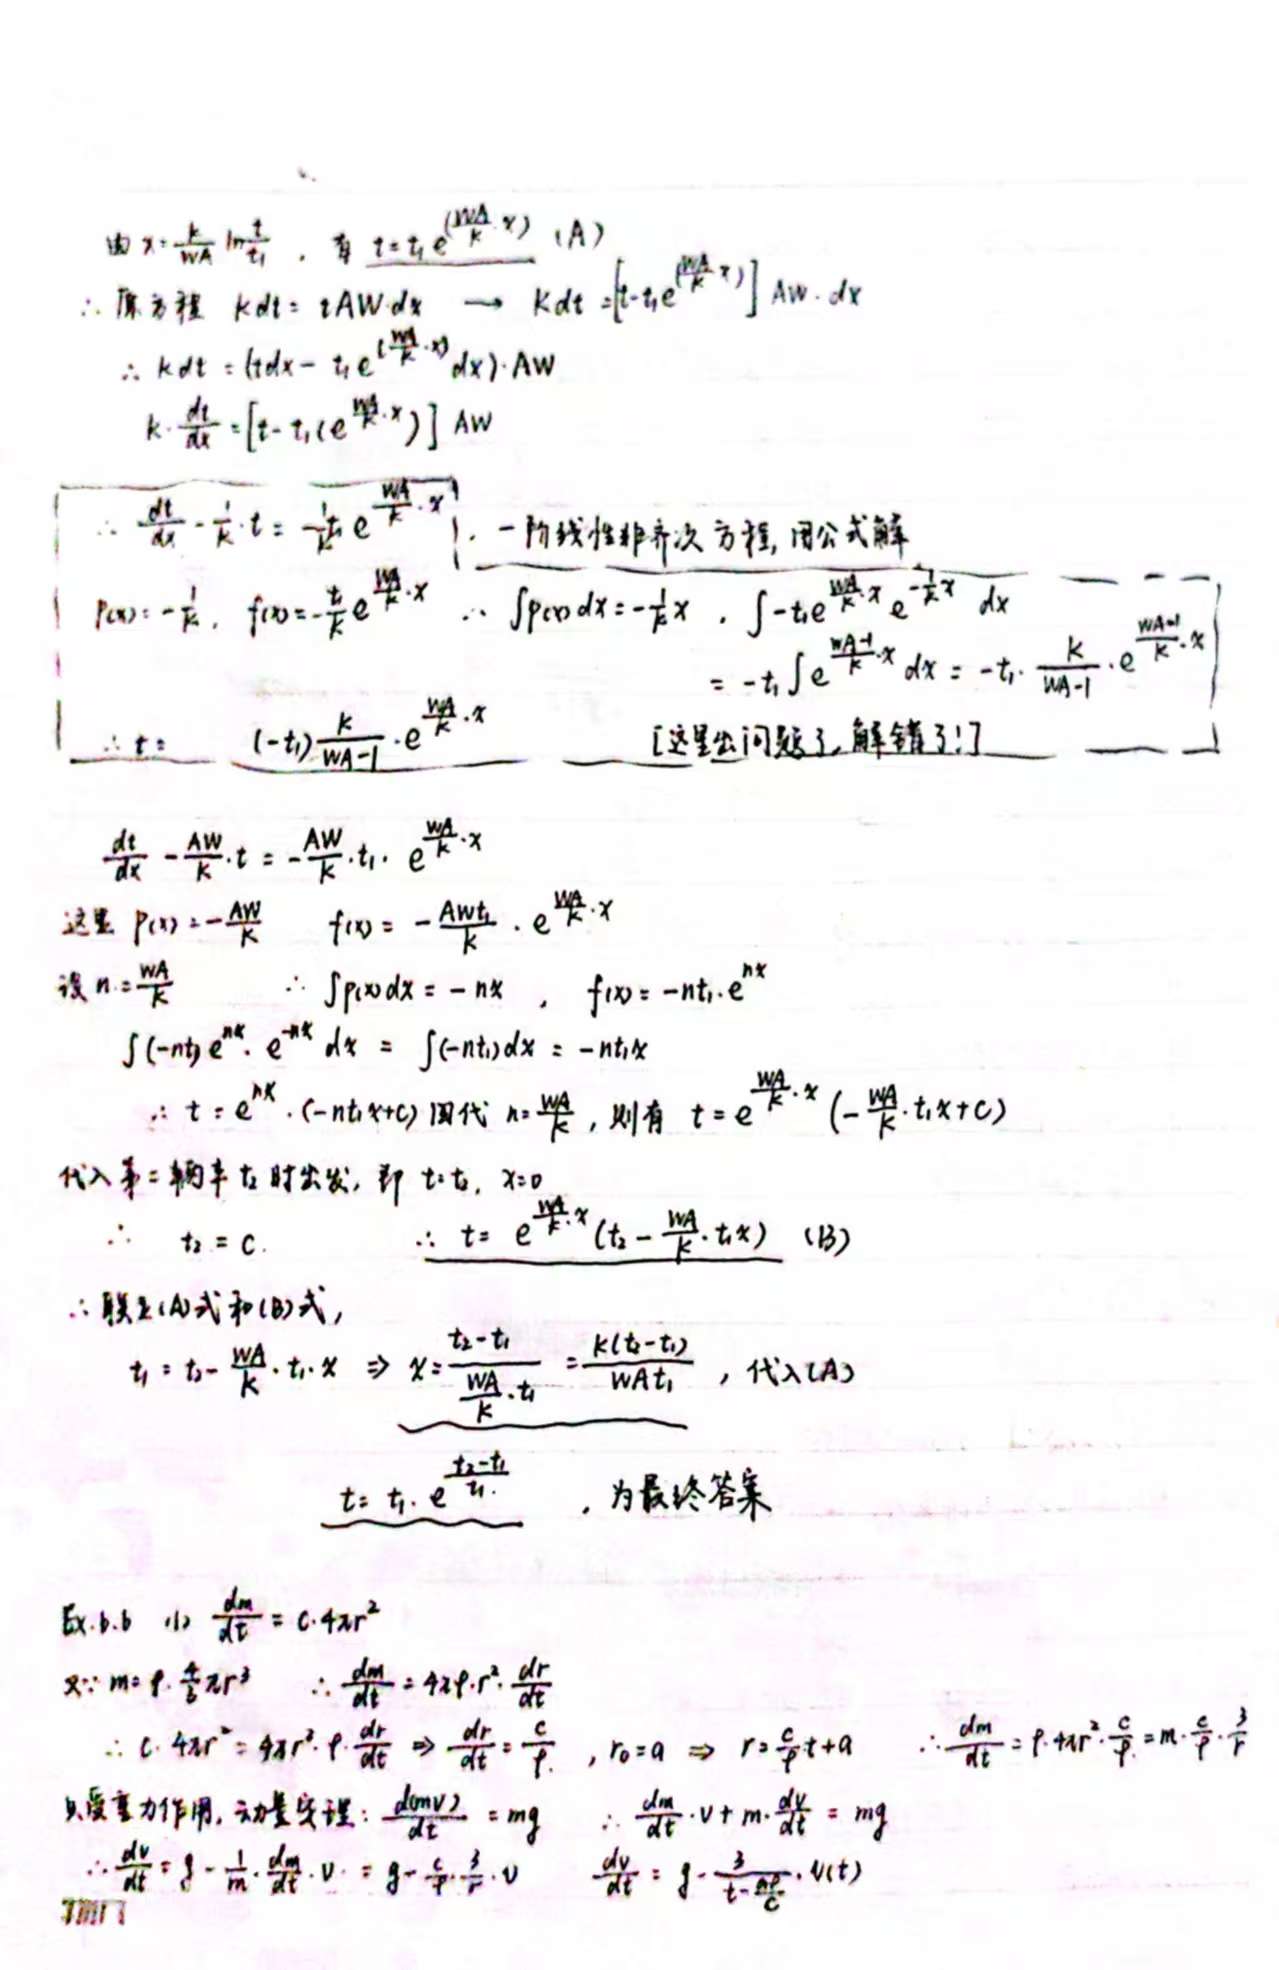 由 x = k/WA ln t/t₁ , 有 t = t₁ e^(WA/k · x) (A)
∴ 原方程 kdt = tAW·dx → kdt = [t - t₁e^(WA/k x)] AW·dx
∴ kdt = (tdx - t₁e^(WA/k · x) dx)·AW
k· dt/dx = [t - t₁(e^(WA/k · x))] AW
∴ dt/dx - 1/k · t = -1/k t₁ e^(WA/k · x) , 一阶线性非齐次方程, 用公式解
P(x) = -1/k , f(x) = -t₁/k e^(WA/k · x) ∴ ∫p(x)dx = -1/k x , ∫-t₁e^(WA/k · x) e^(-1/k x) dx
= -t₁∫e^((WA-1)/k · x) dx = -t₁· k/(WA-1) · e^((WA-1)/k · x)
∴ t = (-t₁) k/(WA-1) · e^(WA/k · x) [这里出问题了, 解错了!]
dt/dx - AW/k · t = -AW/k · t₁ · e^(WA/k · x)
这里 P(x) = -AW/k f(x) = -AWt₁/k · e^(WA/k · x)
设 n = WA/k ∴ ∫p(x)dx = -nx , f(x) = -nt₁·e^(nx)
∫(-nt₁)e^(nx) · e^(-nx) dx = ∫(-nt₁)dx = -nt₁x
∴ t = e^(nx) · (-nt₁x+C) 回代 n = WA/k , 则有 t = e^(WA/k · x) (-WA/k · t₁x+C)
代入第二辆车 t₂ 时出发, 即 t=t₂, x=0
∴ t₂ = C. ∴ t = e^(WA/k · x) (t₂ - WA/k · t₁x) (B)
∴ 联立(A)式和(B)式,
t₁ = t₂ - WA/k · t₁ · x ⇒ x = (t₂-t₁)/(WA/k · t₁) = k(t₂-t₁)/WAt₁ , 代入(A)
t = t₁ · e^((t₂-t₁)/t₁) , 为最终答案
Ex.6.6 (1) dm/dt = C·4πr²
又∵ m = ρ· 4/3 πr³ ∴ dm/dt = 4πρ·r²· dr/dt
∴ C·4πr² = 4πr²·ρ· dr/dt ⇒ dr/dt = C/ρ , r₀=a ⇒ r = C/ρ t+a ∴ dm/dt = ρ·4πr²· C/ρ = m· C/ρ · 3/r
只受重力作用, 动量定理: d(mv)/dt = mg ∴ dm/dt · v + m· dv/dt = mg
∴ dv/dt = g - 1/m · dm/dt · v = g - C/ρ · 3/r · v dv/dt = g - 3/(t - aρ/C) · v(t)